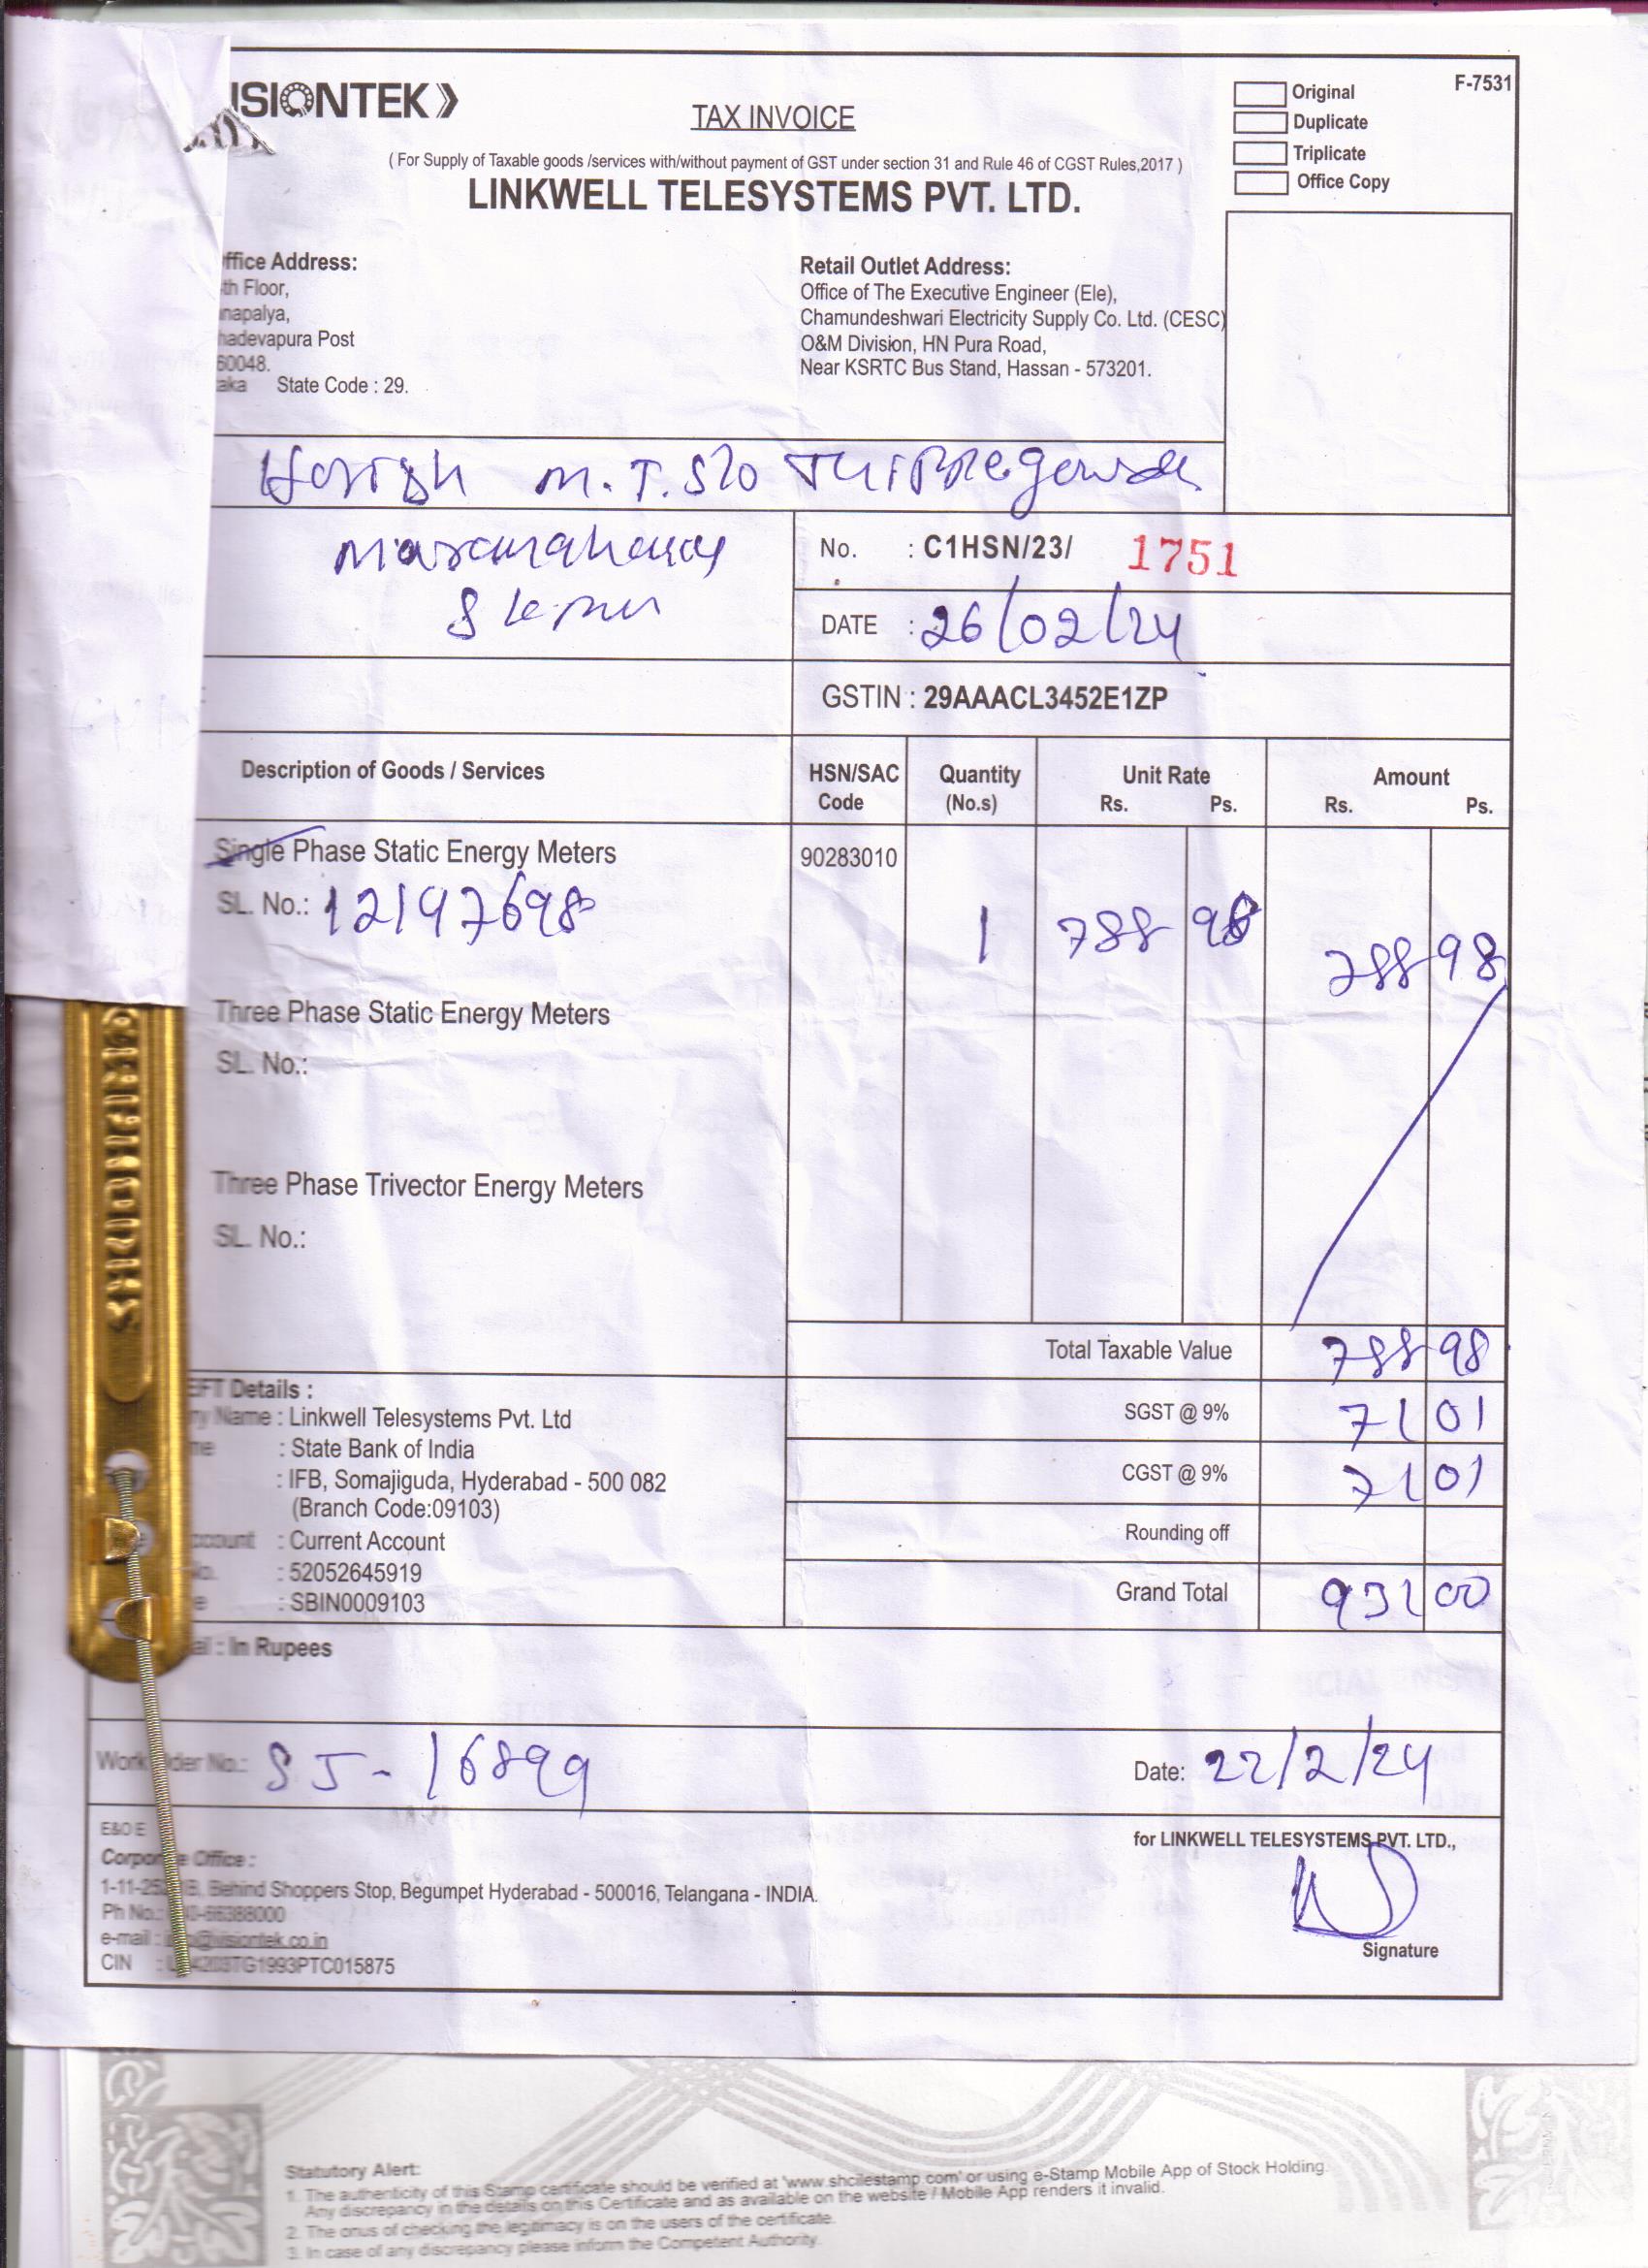 ISIONTEK
TAX INVOICE
Original
Duplicate
Triplicate
Office Copy
F-7531
( For Supply of Taxable goods /services with/without payment of GST under section 31 and Rule 46 of CGST Rules,2017 )
LINKWELL TELESYSTEMS PVT. LTD.
ffice Address:
th Floor,
napalya,
hadevapura Post
60048.
aka State Code : 29.
Retail Outlet Address:
Office of The Executive Engineer (Ele),
Chamundeshwari Electricity Supply Co. Ltd. (CESC)
O&M Division, HN Pura Road,
Near KSRTC Bus Stand, Hassan - 573201.
Harish M.T. S/o
No. : C1HSN/23/ 1751
DATE : 26/02/24
GSTIN : 29AAACL3452E1ZP
Description of Goods / Services HSN/SAC Code Quantity (No.s) Unit Rate Rs. Ps. Amount Rs. Ps.
Single Phase Static Energy Meters 90283010
SL. No.: 12197698 1 788 98 788 98
Three Phase Static Energy Meters
SL. No.:
Three Phase Trivector Energy Meters
SL. No.:
Total Taxable Value 788 98
SGST @ 9% 71 01
CGST @ 9% 71 01
Rounding off
Grand Total 931 00
EFT Details :
ry Name : Linkwell Telesystems Pvt. Ltd
me : State Bank of India
: IFB, Somajiguda, Hyderabad - 500 082
(Branch Code:09103)
ccount : Current Account
No. : 52052645919
e : SBIN0009103
al : In Rupees
Work der No.: SJ - 16899 Date: 22/2/24
E&O E
for LINKWELL TELESYSTEMS PVT. LTD.,
Corpor e Office :
1-11-25 B, Behind Shoppers Stop, Begumpet Hyderabad - 500016, Telangana - INDIA.
Ph No.: 0-66388000
e-mail : @visiontek.co.in
CIN : TG1993PTC015875
Signature
Statutory Alert:
1. The authenticity of this Stamp certificate should be verified at 'www.shcilestamp.com' or using e-Stamp Mobile App of Stock Holding.
Any discrepancy in the details on this Certificate and as available on the website / Mobile App renders it invalid.
2. The onus of checking the legitimacy is on the users of the certificate.
3. In case of any discrepancy please inform the Competent Authority.